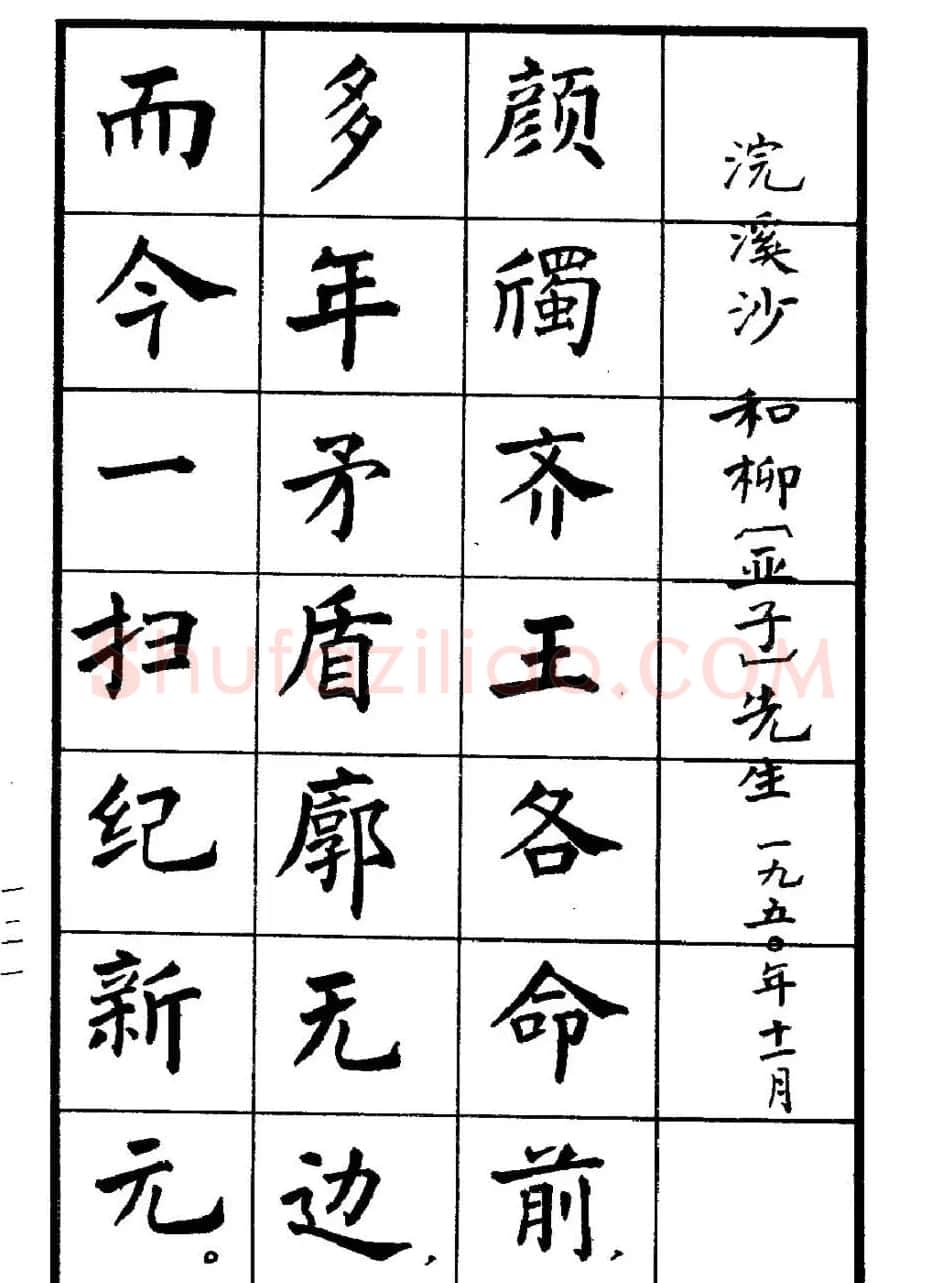 浣溪沙 和柳〔亚子〕先生 一九五〇年十一月
颜斶齐王各命前，
多年矛盾廓无边，
而今一扫纪新元。
一二一
Shufaziliao.COM